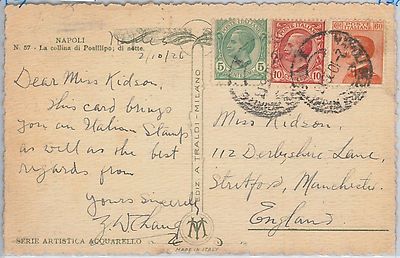 NAPOLI
N. 57 - La collina di Posillipo, di notte.
2/10/26
Dear Miss Kidson,
This card brings
you an Italian Stamp
as well as the best
regards from
Yours Sincerely
EDIZ A TRALDI - MILANO
5
5
10
10
60
Miss Kidson,
112 Derbyshire Lane,
Stretford, Manchester.
England.
SERIE ARTISTICA ACQUARELLO
MADE IN ITALY